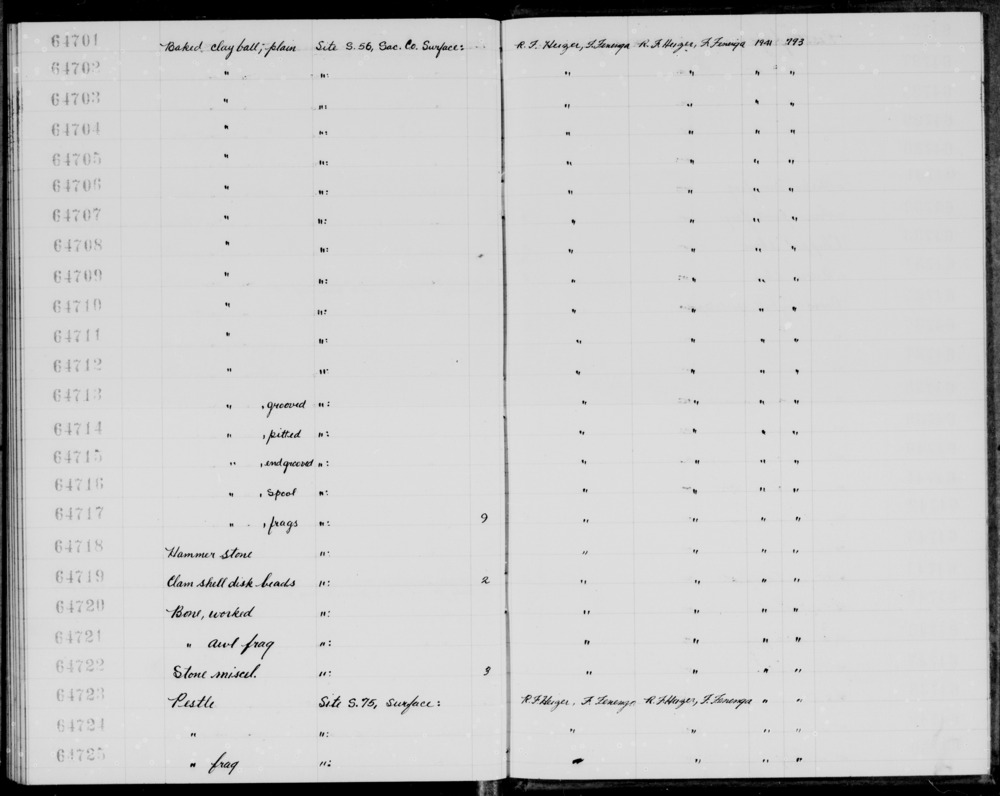 64701 Baked clay ball; plain Site S.56, Sac. Co. Surface: R. F. Heizer, F. Fenenga R. F. Heizer, F. Fenenga 1941 793
64702 " ": " " " "
64703 " ": " " " "
64704 " ": " " " "
64705 " ": " " " "
64706 " ": " " " "
64707 " ": " " " "
64708 " ": " " " "
64709 " ": " " " "
64710 " ": " " " "
64711 " ": " " " "
64712 " ": " " " "
64713 " , grooved ": " " " "
64714 " , pitted ": " " " "
64715 " , end grooved ": " " " "
64716 " , spool ": " " " "
64717 " , frags ": 9 " " " "
64718 Hammer stone ": " " " "
64719 Clam shell disk beads ": 2 " " " "
64720 Bone, worked ": " " " "
64721 " awl frag ": " " " "
64722 Stone miscel. ": 3 " " " "
64723 Pestle Site S.75, Surface: R. F. Heizer, F. Fenenga R. F. Heizer, F. Fenenga " "
64724 " ": " " " "
64725 " frag ": " " " "